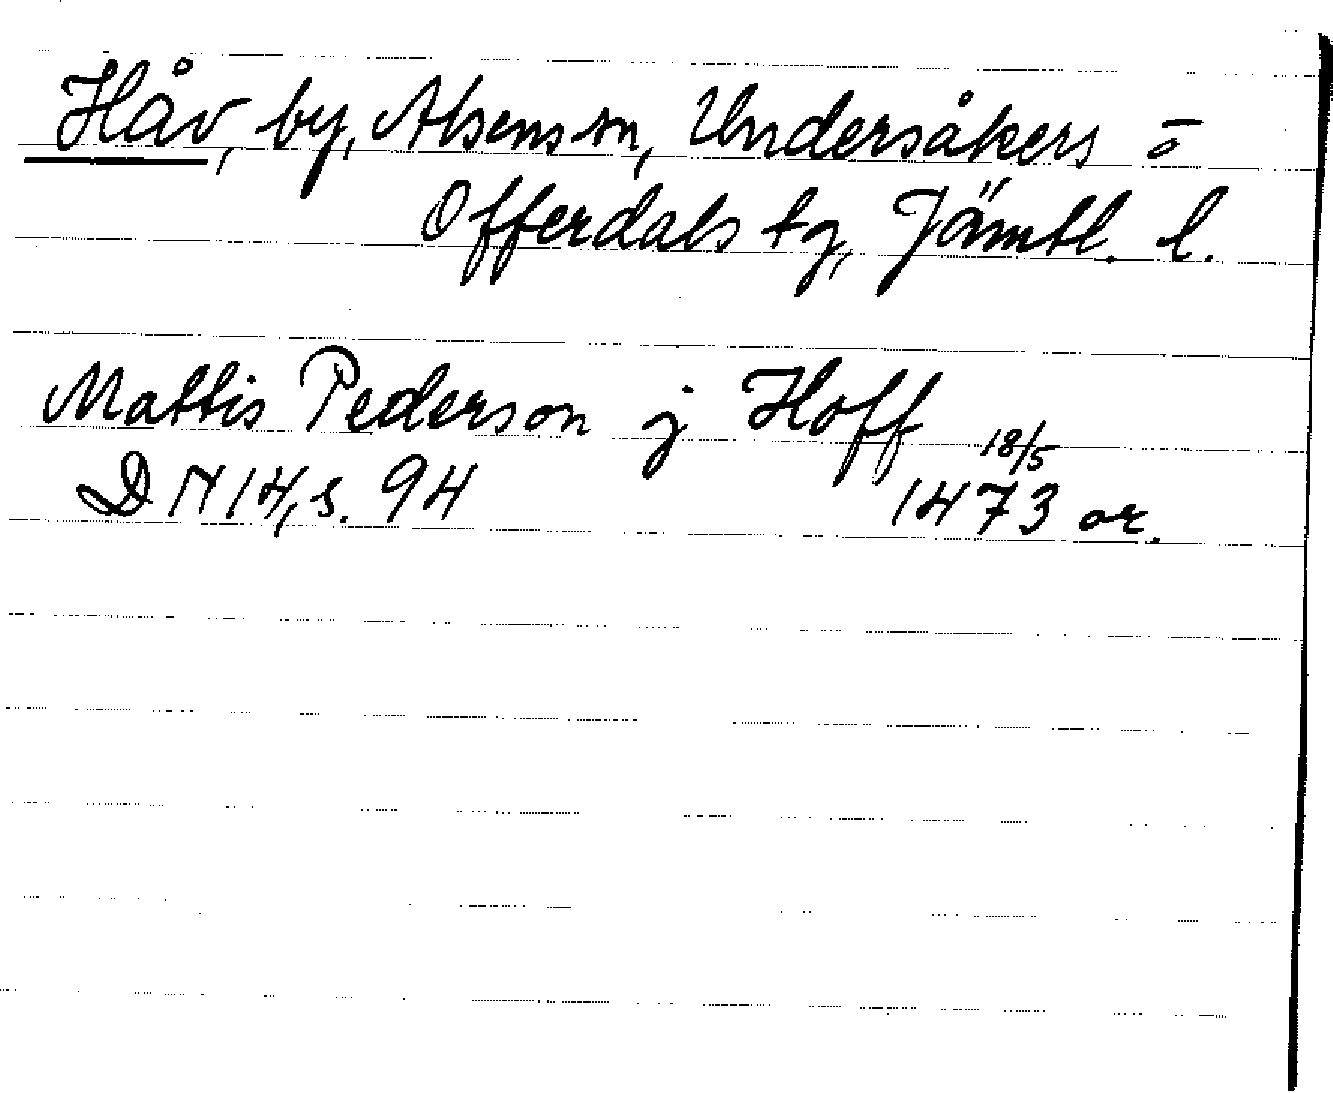 Håv, by, Alsens sn, Undersåkers o
Offerdals tg, Jämtl. l.
Mattis Pederson j Hoff 18/5
DN 14, s. 94 1473 or.